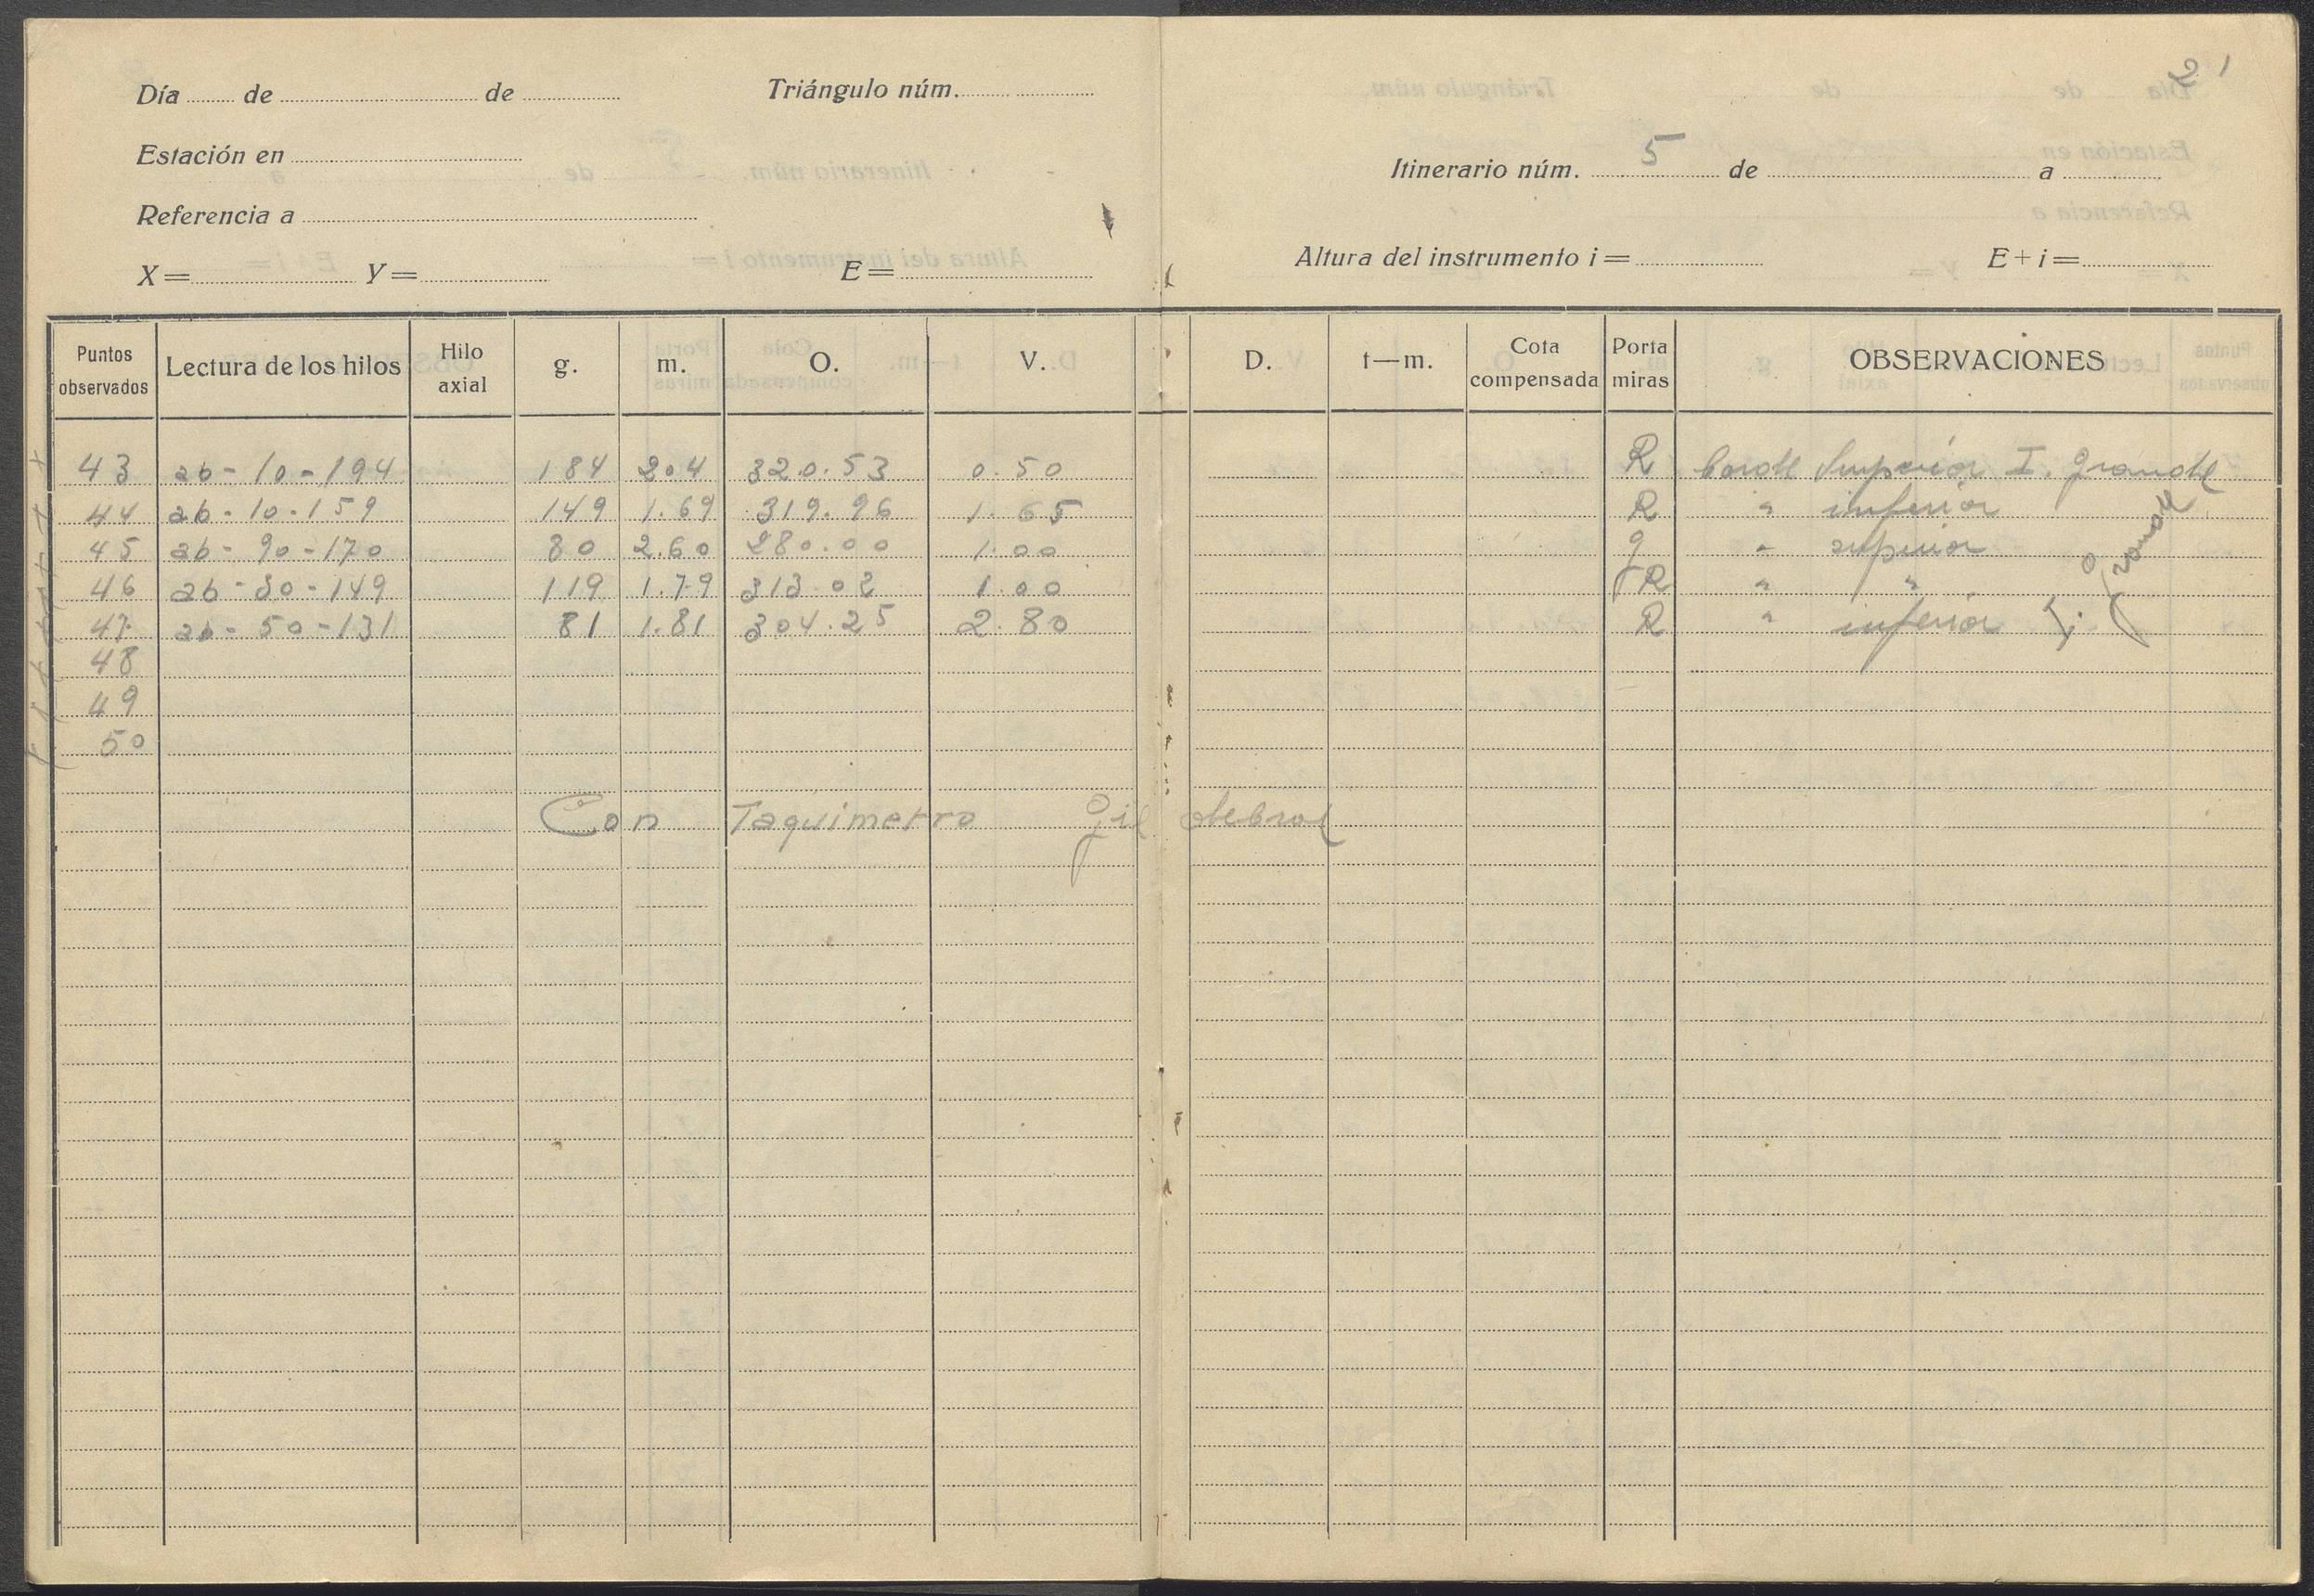 2'
Día ........ de .................................. de .................
Triángulo núm. ........................
Estación en ........................................
Itinerario núm. 5 de .............................................. a .................
Referencia a ....................................................................
X = ............................ Y = ......................
E = .................................
Altura del instrumento i = ......................
E + i = ......................
Puntos observados | Lectura de los hilos | Hilo axial | g. | m. | O. | V. | D. | t—m. | Cota compensada | Porta miras | OBSERVACIONES
43 | ab - 10 - 194 | | 184 | 2.04 | 320.53 | 0.50 | | | | R | borde Superior I. grande
44 | ab - 10 - 159 | | 149 | 1.69 | 319.96 | 1.65 | | | | R | " inferior
45 | ab - 90 - 170 | | 80 | 2.60 | 280.00 | 1.00 | | | | g | " superior
46 | ab - 30 - 149 | | 119 | 1.79 | 313.02 | 1.00 | | | | R | " "
47 | ab - 50 - 131 | | 81 | 1.81 | 304.25 | 2.80 | | | | R | " inferior I. Grande
48
49
50
Con Taquimetro Gil debrol